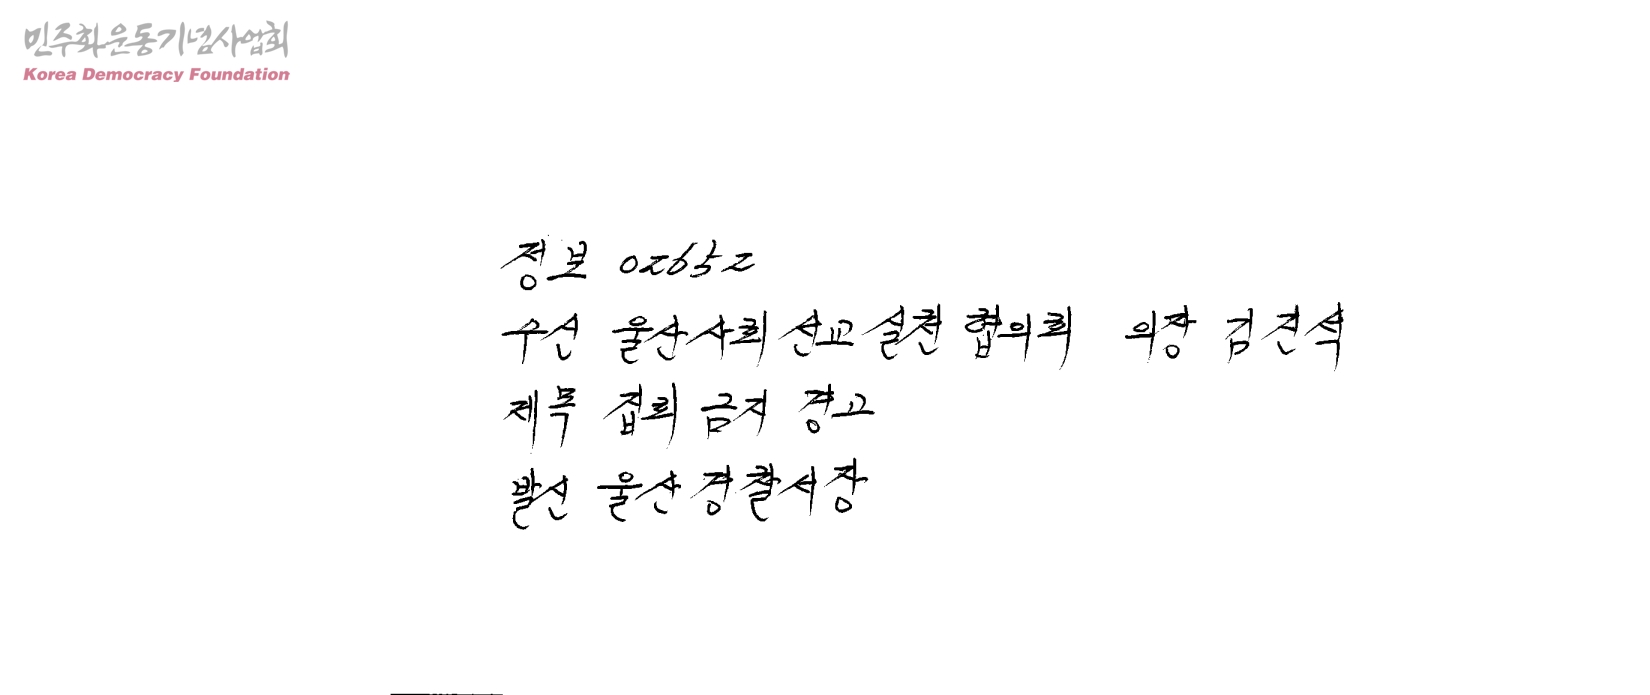 민주화운동기념사업회
Korea Democracy Foundation
정보 02652
수신 울산사회선교실천협의회 의장 김진석
제목 집회 금지 경고
발신 울산경찰서장